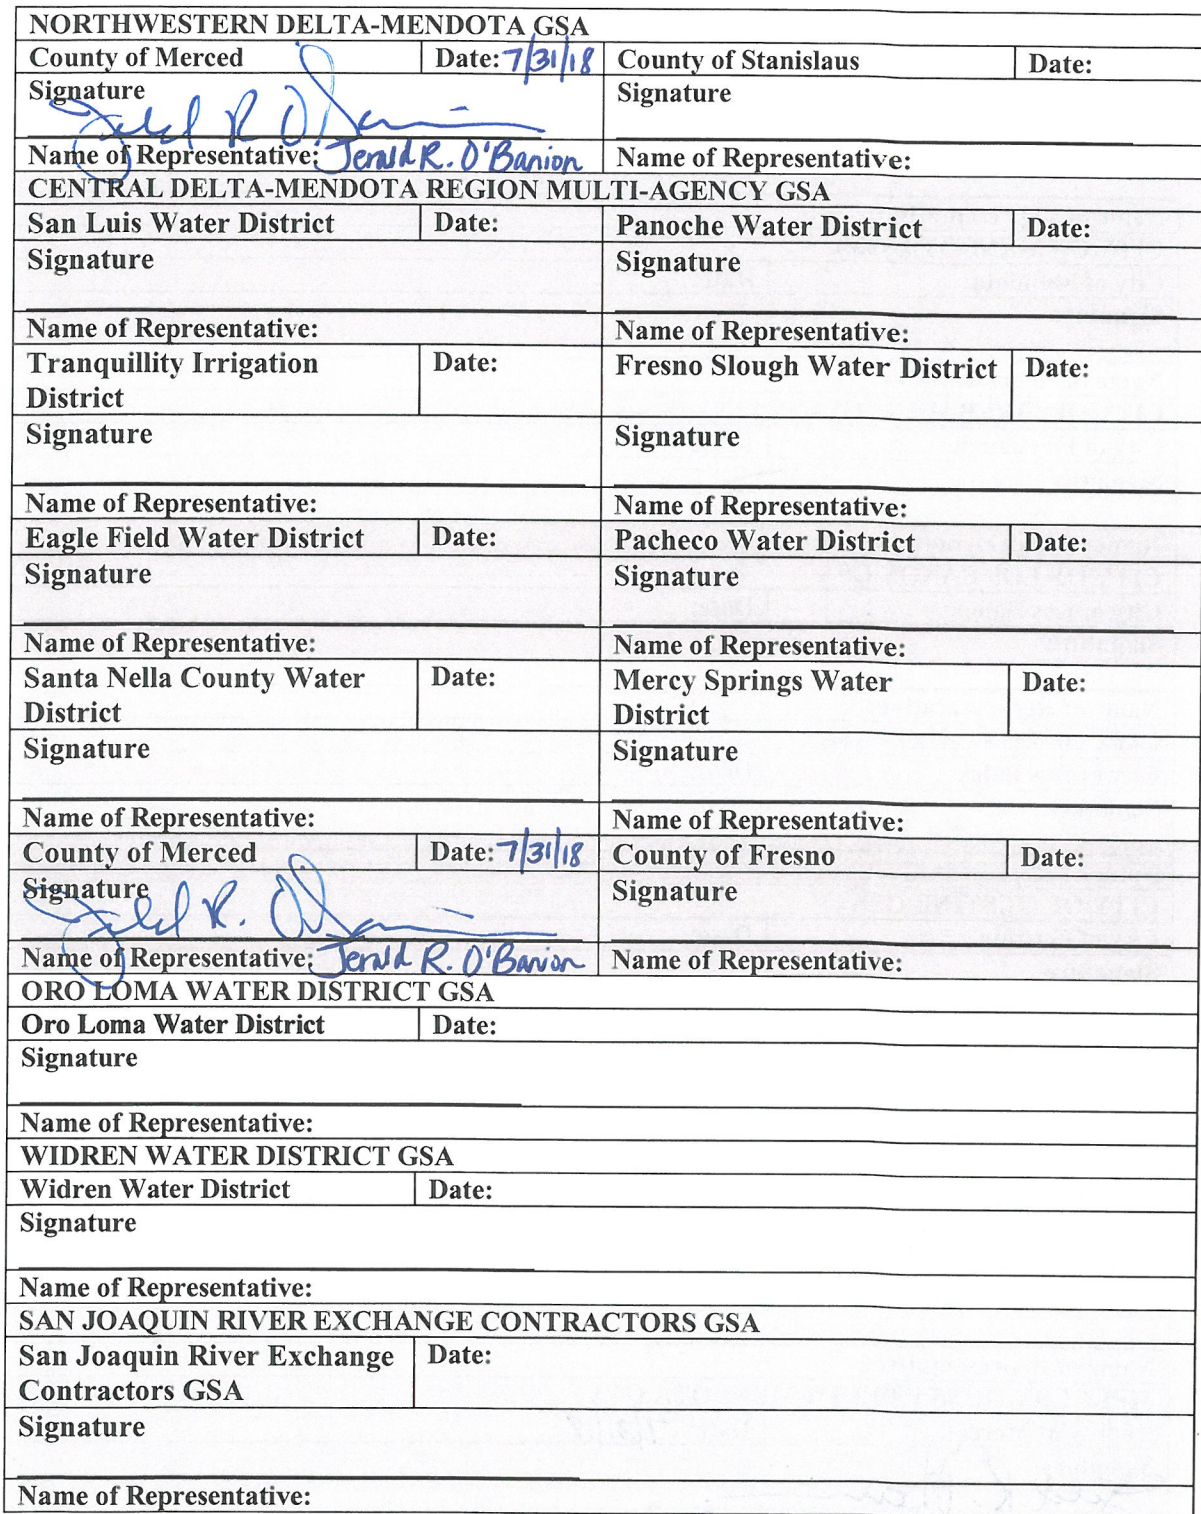 NORTHWESTERN DELTA-MENDOTA GSA
County of Merced Date: 7/31/18 County of Stanislaus Date:
Signature Signature
Jerald R O'Banion
Name of Representative: Jerald R. O'Banion Name of Representative:
CENTRAL DELTA-MENDOTA REGION MULTI-AGENCY GSA
San Luis Water District Date: Panoche Water District Date:
Signature Signature
Name of Representative: Name of Representative:
Tranquillity Irrigation Date: Fresno Slough Water District Date:
District
Signature Signature
Name of Representative: Name of Representative:
Eagle Field Water District Date: Pacheco Water District Date:
Signature Signature
Name of Representative: Name of Representative:
Santa Nella County Water Date: Mercy Springs Water Date:
District District
Signature Signature
Name of Representative: Name of Representative:
County of Merced Date: 7/31/18 County of Fresno Date:
Signature Signature
Jerald R. O'Banion
Name of Representative: Jerald R. O'Banion Name of Representative:
ORO LOMA WATER DISTRICT GSA
Oro Loma Water District Date:
Signature
Name of Representative:
WIDREN WATER DISTRICT GSA
Widren Water District Date:
Signature
Name of Representative:
SAN JOAQUIN RIVER EXCHANGE CONTRACTORS GSA
San Joaquin River Exchange Date:
Contractors GSA
Signature
Name of Representative: